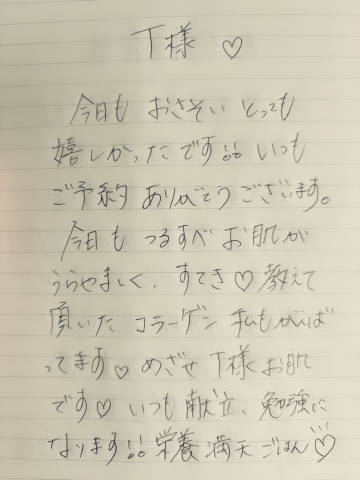 T様 ♡
今日も おさそい とっても
嬉しかったです!! いつも
ご予約 ありがとうございます。
今日も つるすべ お肌が
うらやましく、すてき♡ 教えて
頂いた コラーゲン 私もがんば
ってます♡ めざせ T様 お肌
です♡ いつも 献立、勉強に
なります!! 栄養満天ごはん♡